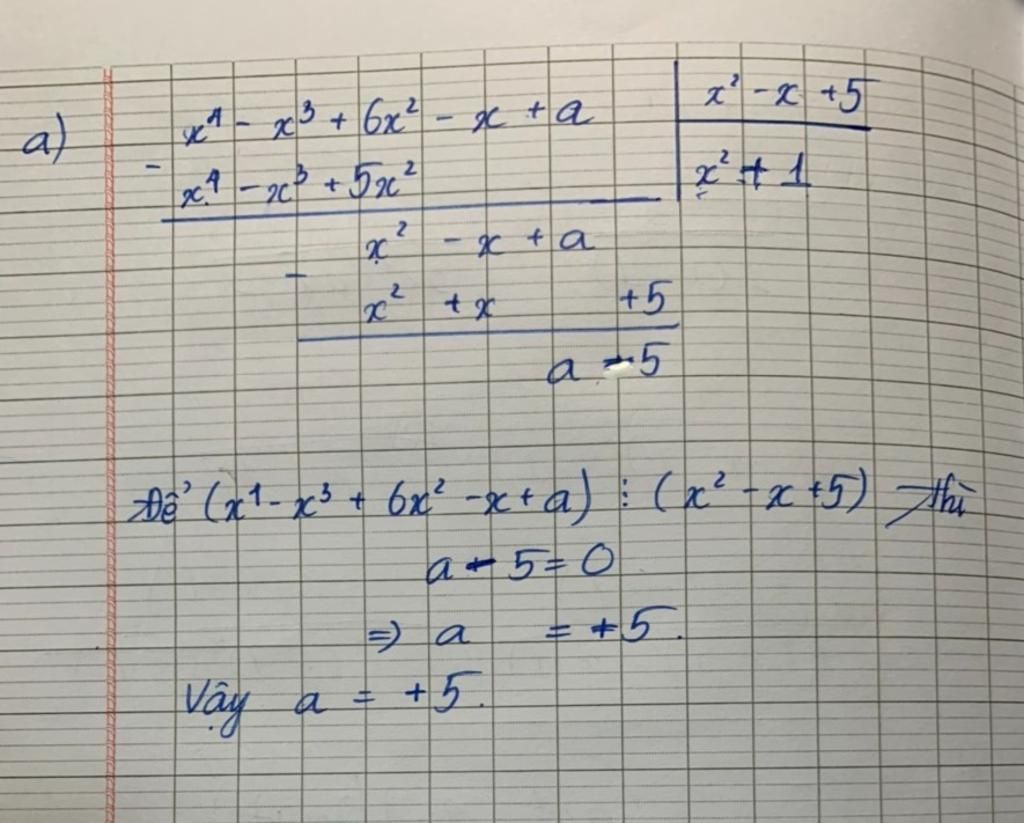 a) x⁴ - x³ + 6x² - x + a | x² - x + 5
- x⁴ - x³ + 5x² | x² + 1
x² - x + a
- x² + x + 5
a - 5
Để (x⁴ - x³ + 6x² - x + a) ⋮ (x² - x + 5) thì
a - 5 = 0
⇒ a = +5.
Vậy a = +5.